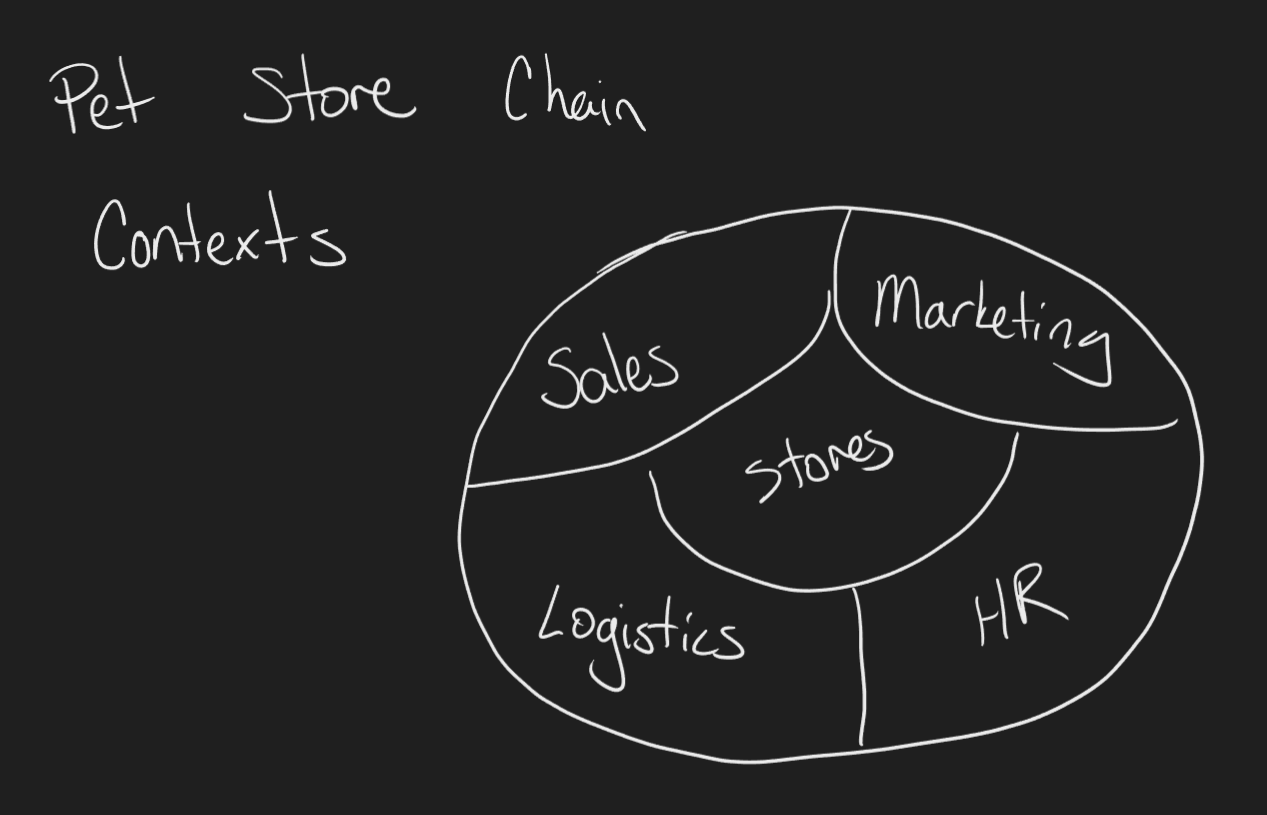 Pet Store Chain
Contexts
Sales
Marketing
Stores
Logistics
HR